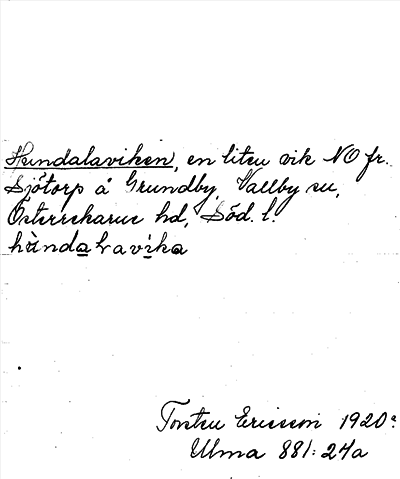 Hundalaviken, en liten vik NO fr.
Sjötorp å Grundby, Vallby sn,
Österrekarne hd, Söd. l.
Torsten Ericsson 1920
Ulma 881:24a